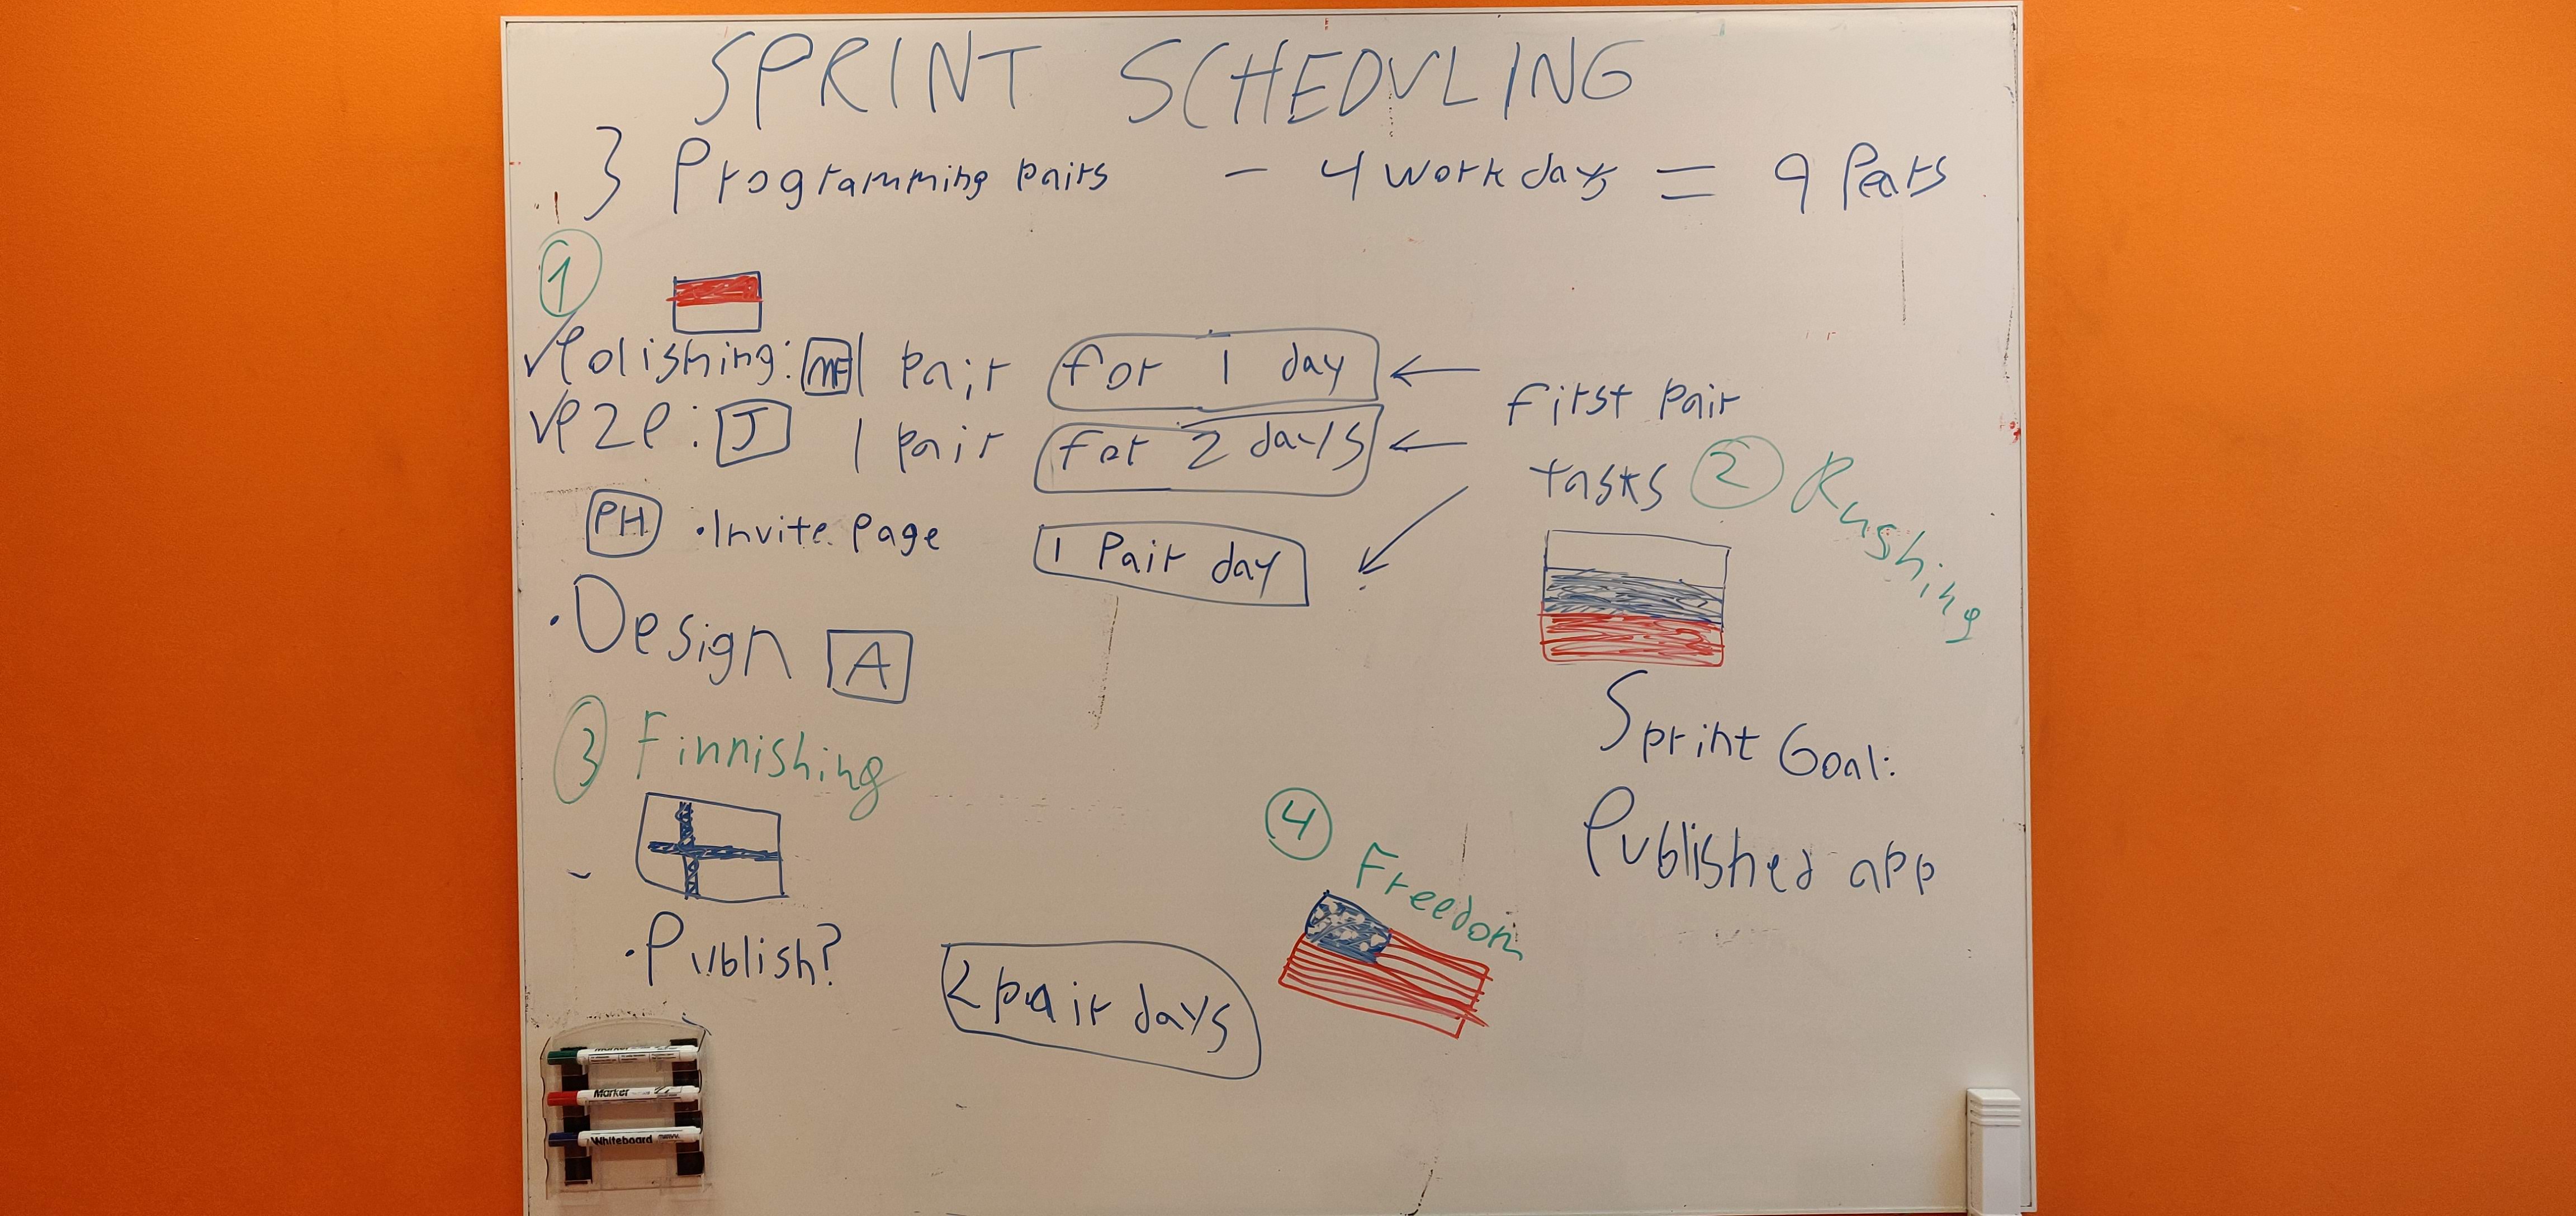 SPRINT SCHEDULING
3 Programming pairs - 4 work days = 9 Pears
1
✓Polishing: MF 1 pair for 1 day ←
✓P2P: J 1 pair for 2 days ←
First pair
tasks
2 Rushing
PH • Invite Page 1 Pair day
• Design A
3 Finnishing
Sprint Goal:
Published app
4 Freedom
• Publish? 2 pair days
Marker
Marker
Whiteboard